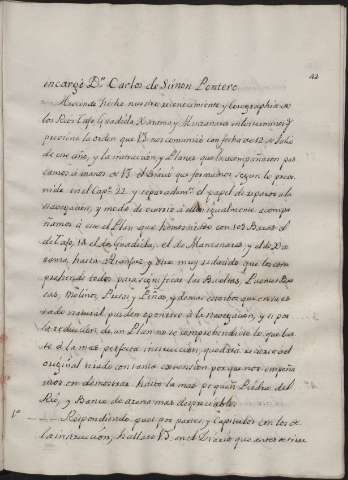 42
encargò Dn. Carlos de Simon Pontero
Haviendo hecho nuestro reconocimiento y Geographia de
los Rios Tajo, Guadiela, Xarama y Manzanares en terminos q
previene la orden que VS nos comunicò con fecha de 12 de Julio
de este año, y la instruccion y Planes que la acompañaron pas
camos à manos de VS el Diario que formamos segun lo preve
nido en el Capo. 22 y separadamte. el papel de reparos a la
navegacion, y modo de ocurrir à ellos igualmente acompa
ñamos à este el Plan que hemos hecho con
del Tajo, el de Guadiela, el de Manzanares, y el de Xa
rama, hasta Aranjuez, y otro muy reducido que los com
prehende todos para significar las Bueltas, Puentes Pre
sas, Molinos, Presas y Peñas, y demas estorbos que en su es
tado natural pueden oponerse à la navegacion, y si por
la reduccion de un Plan no se comprehendiere lo que bas
te à la mas perfecta instruccion, quedará
original tirado con tanta extension por que nos empeña
mos en demostrar hasta la mas pequeña Piedra del
Rio, y Banco de arena mas despreciable.
1º Respondiendo pues por partes, y Capitulos con los de
la instruccion, hallara VS en el Diario que